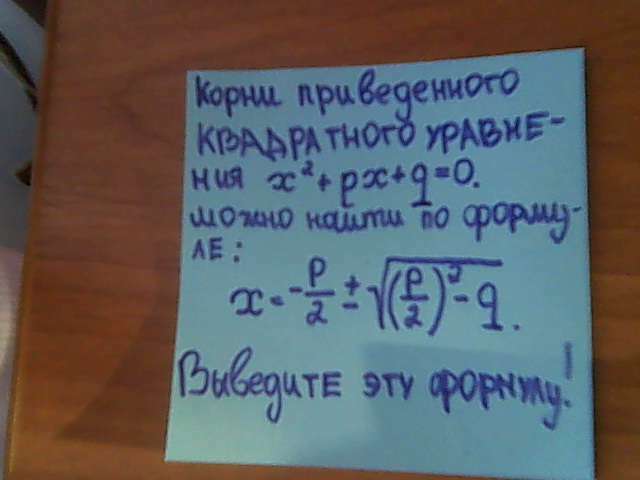 Корни приведенного
КВАДРАТНОГО УРАВНЕ-
НИЯ x² + px + q = 0.
можно найти по форму-
ЛЕ:
x = -p/2 ± √((p/2)² - q).
Выведите эту формулу!